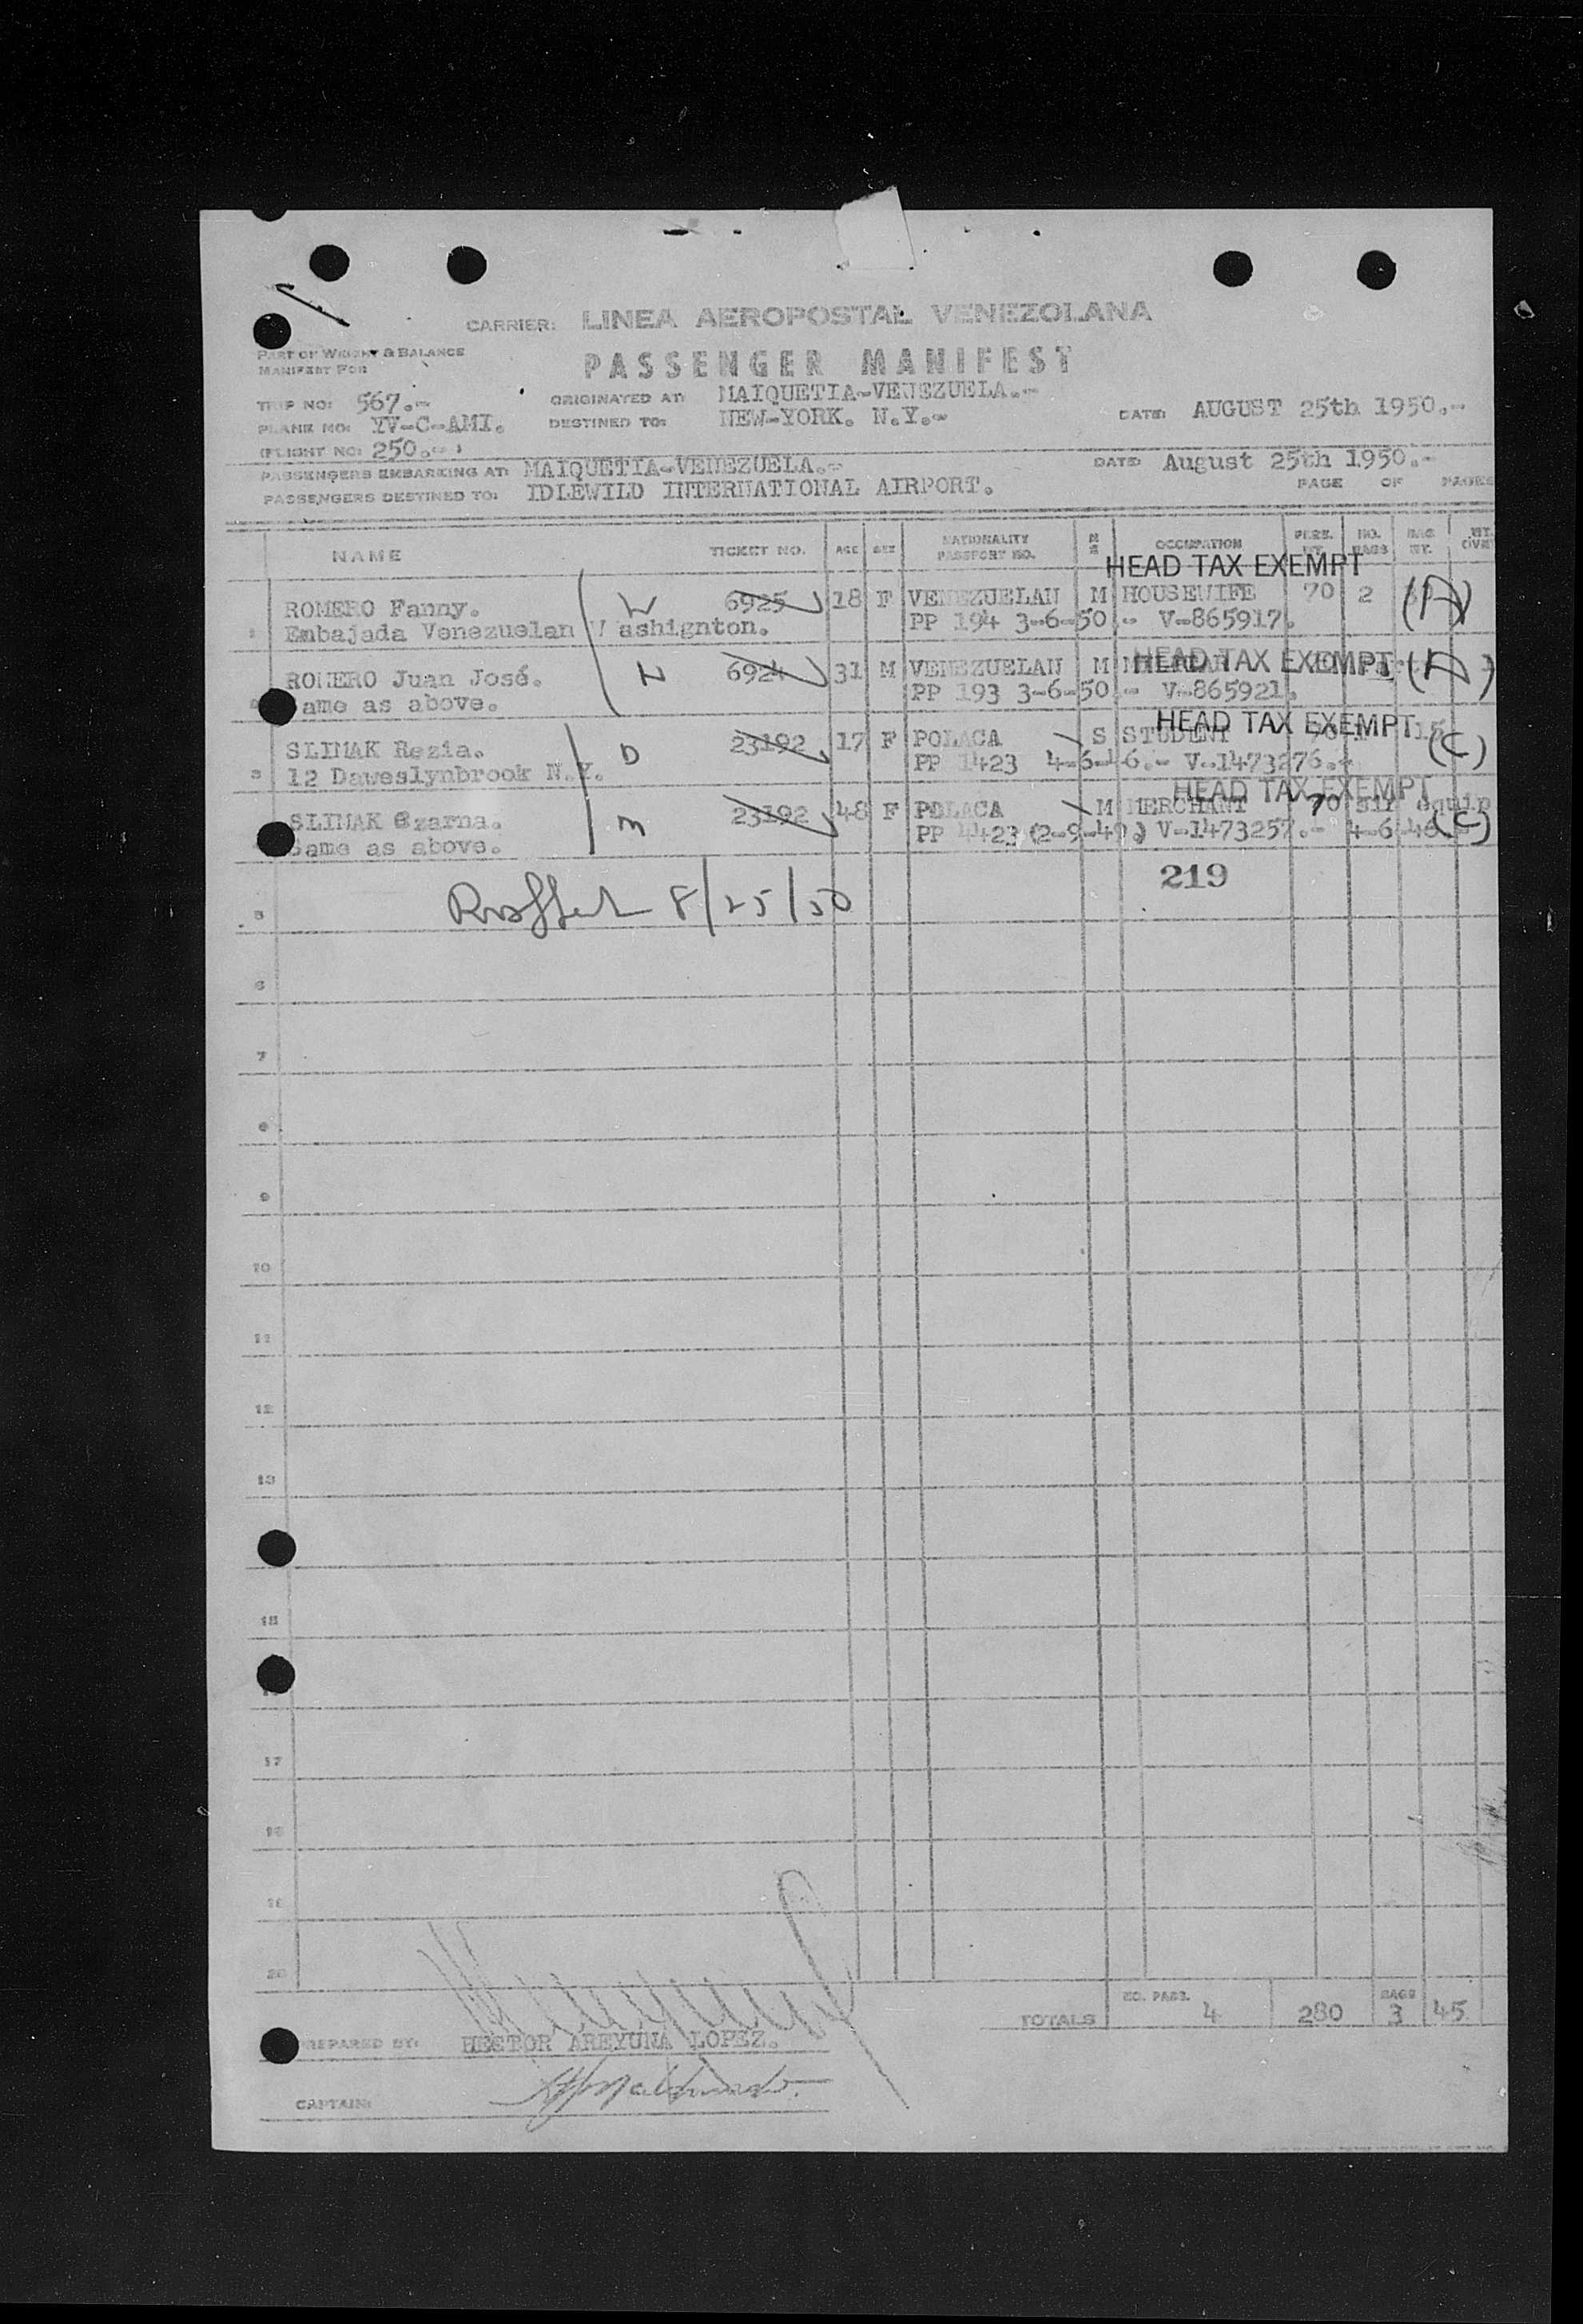 CARRIER: LINEA AEROPOSTAL VENEZOLANA
PART OF WEIGHT & BALANCE
MANIFEST FOR
PASSENGER MANIFEST
TRIP NO: 567.-
ORIGINATED AT: MAIQUETIA-VENEZUELA.-
PLANE NO: YV-C-AMI.
DESTINED TO: NEW-YORK. N.Y.-
DATE: AUGUST 25th 1950.-
FLIGHT NO: 250.-
PASSENGERS EMBARKING AT: MAIQUETIA-VENEZUELA.-
DATE: August 25th 1950.-
PASSENGERS DESTINED TO: IDLEWILD INTERNATIONAL AIRPORT.
PAGE OF PAGES
NAME TICKET NO. AGE SEX NATIONALITY PASSPORT NO. M S OCCUPATION PERS. WT. NO. BAGS BAG WT. WT. OVER
HEAD TAX EXEMPT
ROMERO Fanny. 6925 18 F VENEZUELAN M HOUSEWIFE 70 2 (A)
1 Embajada Venezuelan Washignton. PP 194 3-6-50.- V-865917.
HEAD TAX EXEMPT
ROMERO Juan José. 6924 31 M VENEZUELAN M (A)
Same as above. PP 193 3-6-50.- V-865921.
HEAD TAX EXEMPT
SLIMAK Rezia. D 23192 17 F POLACA S STUDENT 15 (C)
3 12 Daweslynbrook N.Y. PP 1423 4-6-46.- V-1473276.-
HEAD TAX EXEMPT
SLIMAK Czarna. M 23192 48 F POLACA M MERCHANT 70 sin equip
Same as above. PP 1423 (2-9-49.) V-1473257.- 4-6-46 (C)
219
5 8/25/50
6
7
8
9
10
11
12
13
15
17
18
20
TOTALS NO. PASS. 4 280 BAGS 3 45
PREPARED BY: HECTOR AREYUNA LOPEZ.
CAPTAIN: